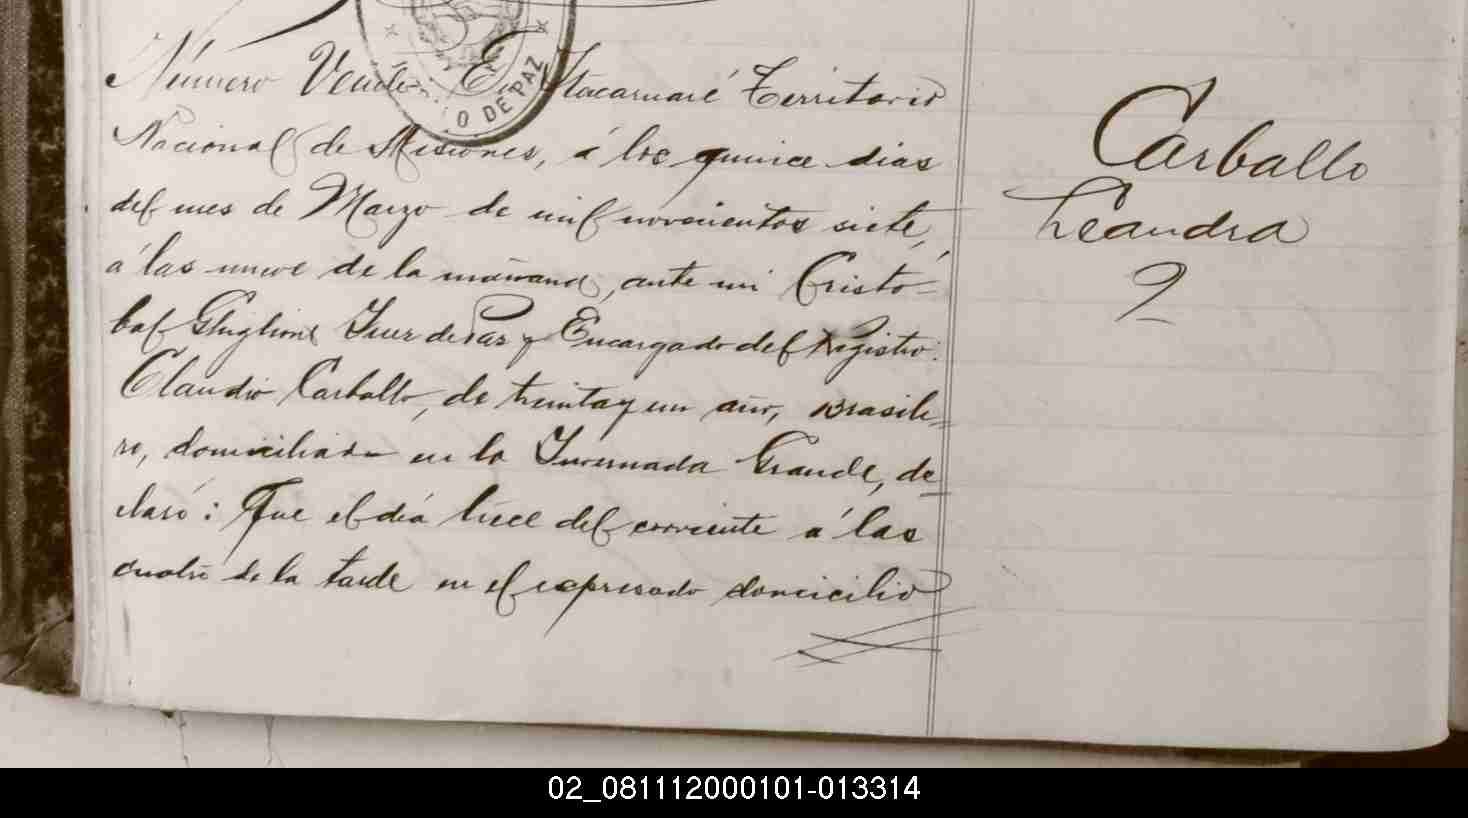 Número Veinte. En Itacaruaré Territorio
Nacional de Misiones, á los quince dias
del mes de Marzo de mil novecientos siete,
á las nueve de la mañana, ante mi Cristó=
bal Ghiglione Juez de Paz y Encargado del Registro:
Claudio Carballo, de treinta y un año, Brasile=
ro, domiciliado en la Invernada Grande, de=
claró: Que el día trece del corriente á las
cuatro de la tarde en el expresado domicilio
DE PAZ
Carballo
Leandra
2
02_081112000101-013314